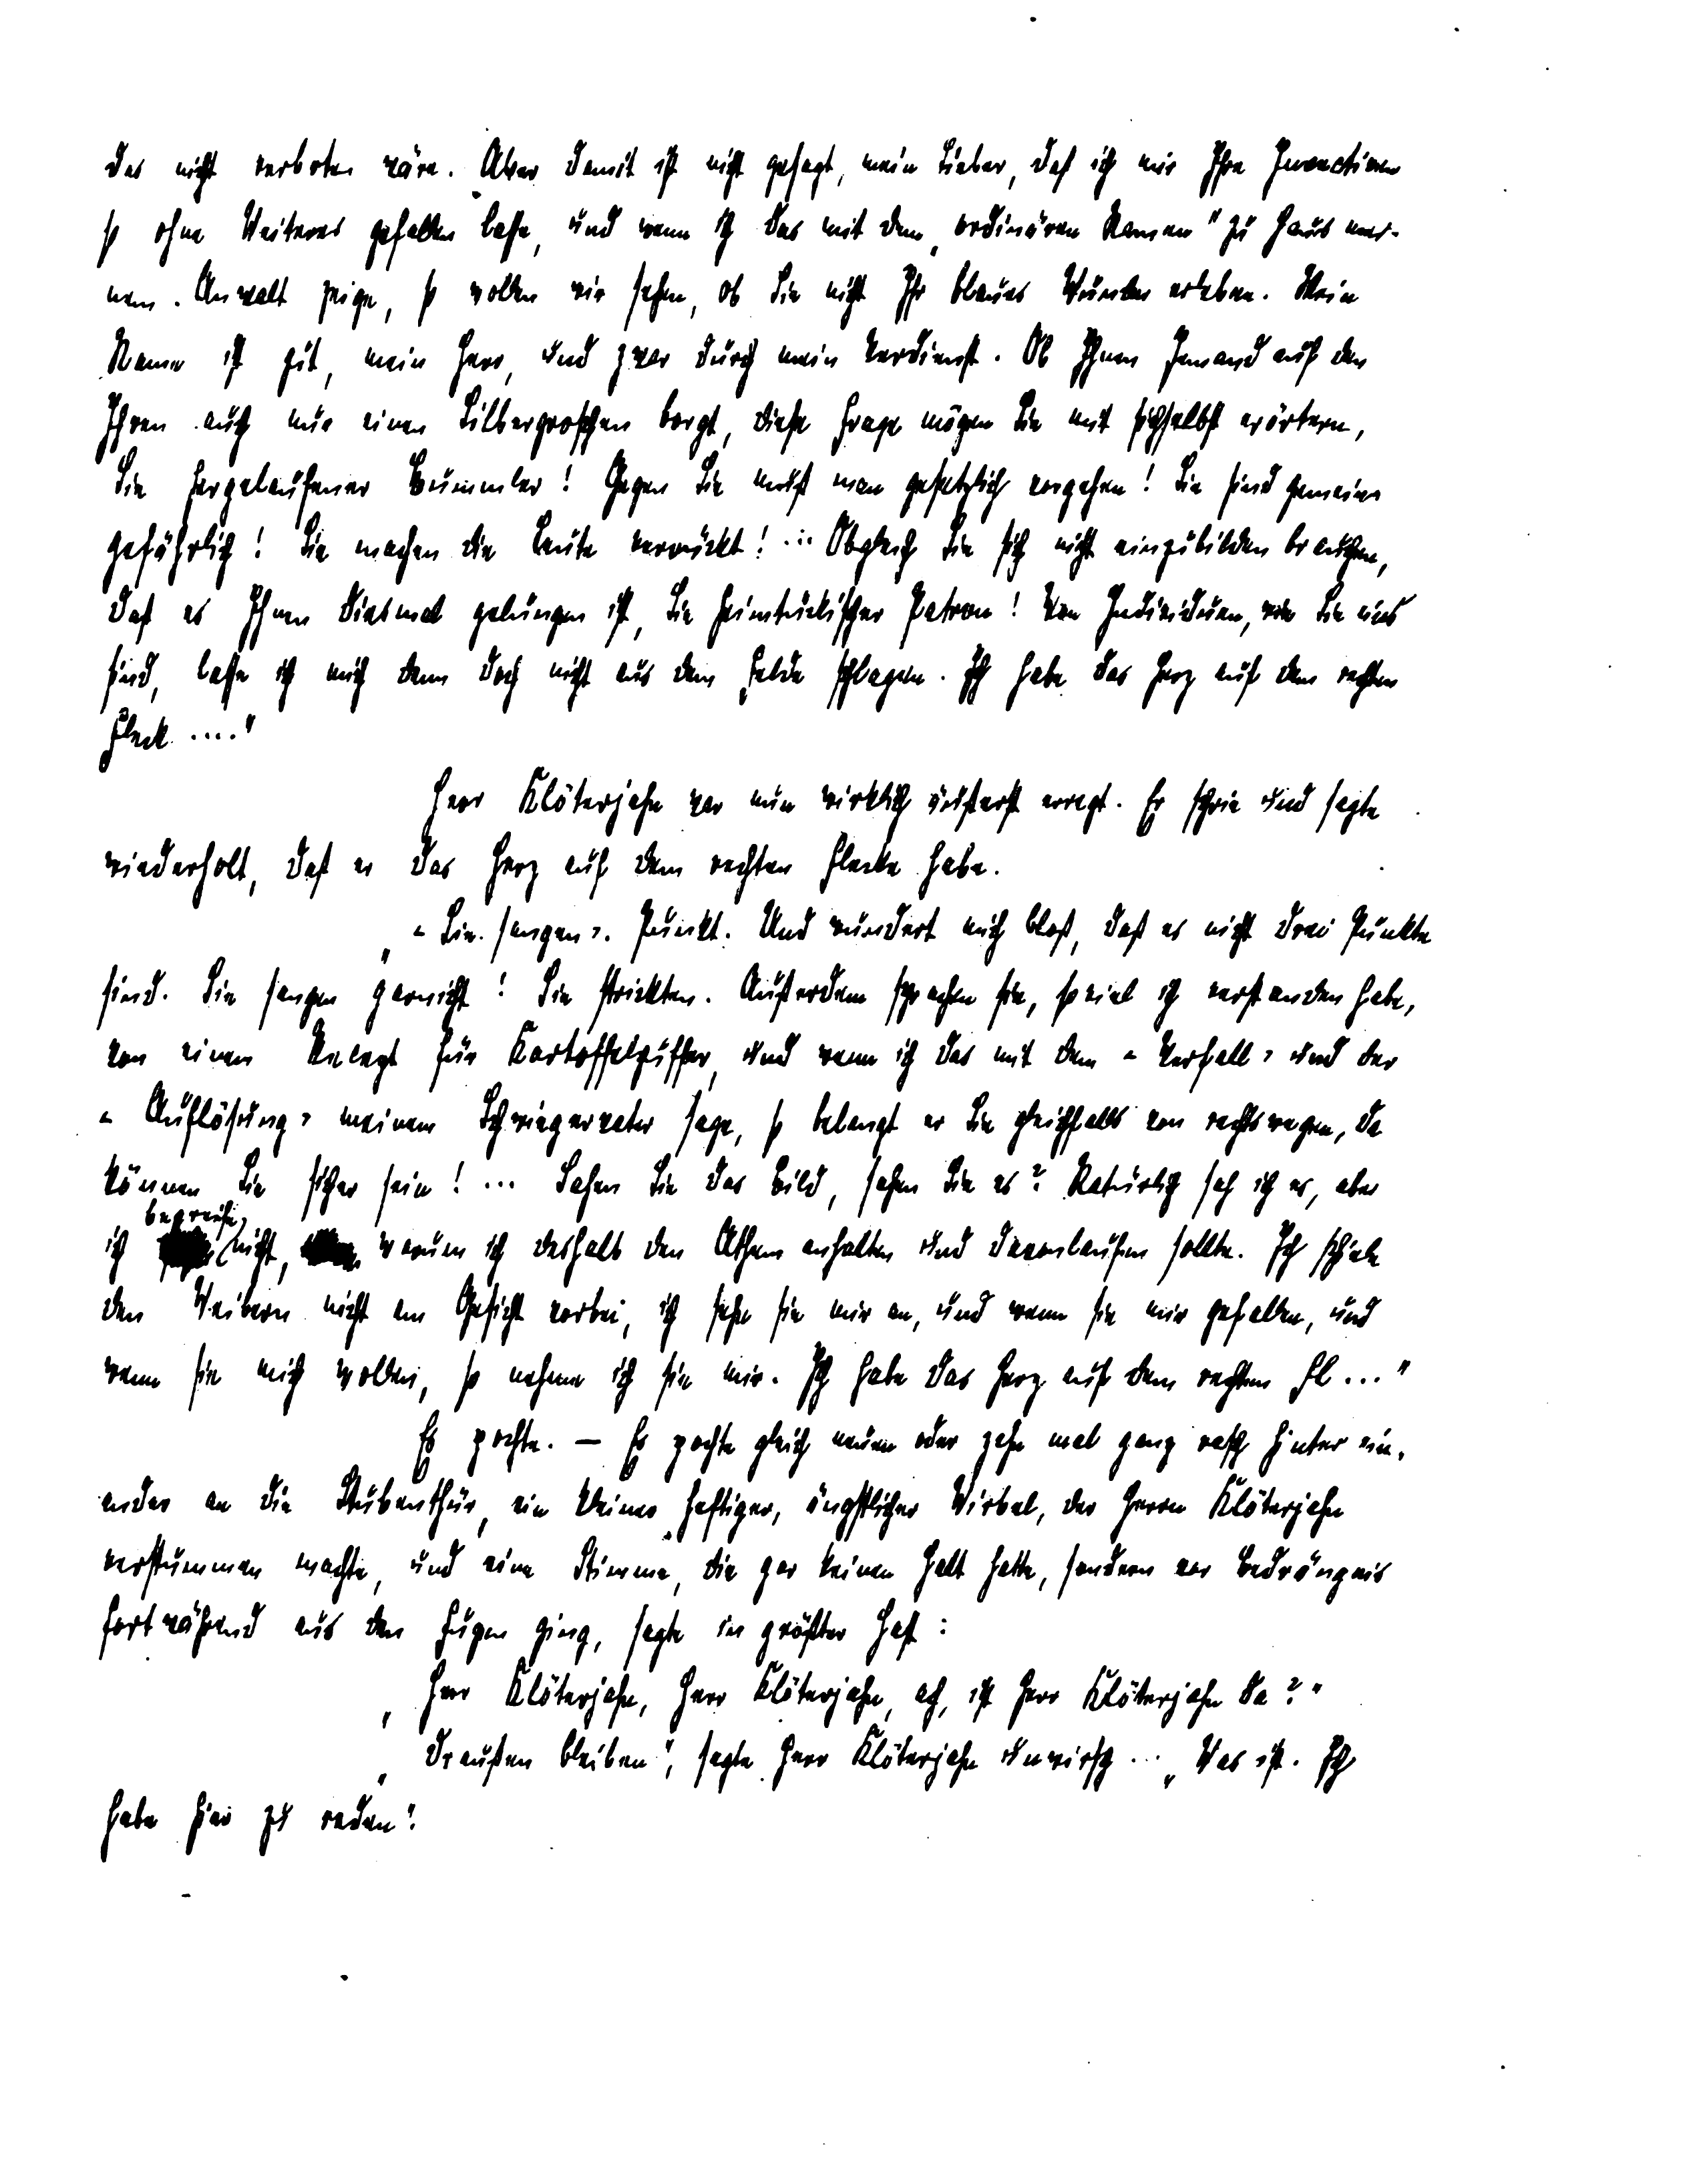 das nicht verboten wäre. Aber damit ist nicht gesagt, mein Lieber, daß ich mir Ihre Invectiven
so ohne Weiteres gefallen lasse, und wenn ich das mit dem „ordinären Namen" zu Haus mei-
nem Anwalt zeige, so wollen wir sehen, ob Sie nicht Ihr blaues Wunder erleben. Mein
Name ist gut, mein Herr, und zwar durch mein Verdienst. Ob Ihnen Jemand auf den
Ihren auch nur einen Silbergroschen borgt, diese Frage mögen Sie mit sichselbst erörtern,
Sie hergelaufener Bummler! Gegen Sie muß man gesetzlich vorgehen! Sie sind gemein-
gefährlich! Sie machen die Leute verrückt! ... Obgleich Sie sich nicht einzubilden brauchen,
daß es Ihnen diesmal gelungen ist, Sie heimtückischer Patron! Von Individuen, wie Sie eins
sind, lasse ich mich denn doch nicht aus dem Felde schlagen. Ich habe das Herz auf dem rechten
Fleck ...."
Herr Klöterjahn war nun wirklich äußerst erregt. Er schrie und sagte
wiederholt, daß er das Herz auf dem rechten Flecke habe.
„‹Sie sangen›. Punkt. Und wundert mich bloß, daß es nicht drei Punkte
sind. Sie sangen garnicht! Sie strickten. Außerdem sprachen sie, soviel ich verstanden habe,
von einem Recept für Kartoffelpuffer, und wenn ich das mit dem ‹Verfall› und der
‹Auflösung› meinem Schwiegervater sage, so belangt er Sie gleichfalls von rechtswegen, da
können Sie sicher sein! ... Sahen Sie das Bild, sahen Sie es? Natürlich sah ich es, aber
ich begreife nicht, warum ich deshalb den Athem anhalten und davonlaufen sollte. Ich schiele
den Weibern nicht am Gesicht vorbei, ich sehe sie mir an, und wenn sie mir gefallen, und
wenn sie mich wollen, so nehme ich sie mir. Ich habe das Herz auf dem rechten Fl ..."
Es pochte. — Es pochte gleich neun oder zehn mal ganz rasch hinter ein-
ander an die Stubenthür, ein kleiner heftiger, ängstlicher Wirbel, der Herrn Klöterjahn
verstummen machte, und eine Stimme, die gar keinen Halt hatte, sondern vor Bedrängnis
fortwährend aus den Fugen ging, sagte in größter Hast:
„Herr Klöterjahn, Herr Klöterjahn, ach, ist Herr Klöterjahn da?"
„Draußen bleiben", sagte Herr Klöterjahn unwirsch ... „Was ist. Ich
habe hier zu reden".